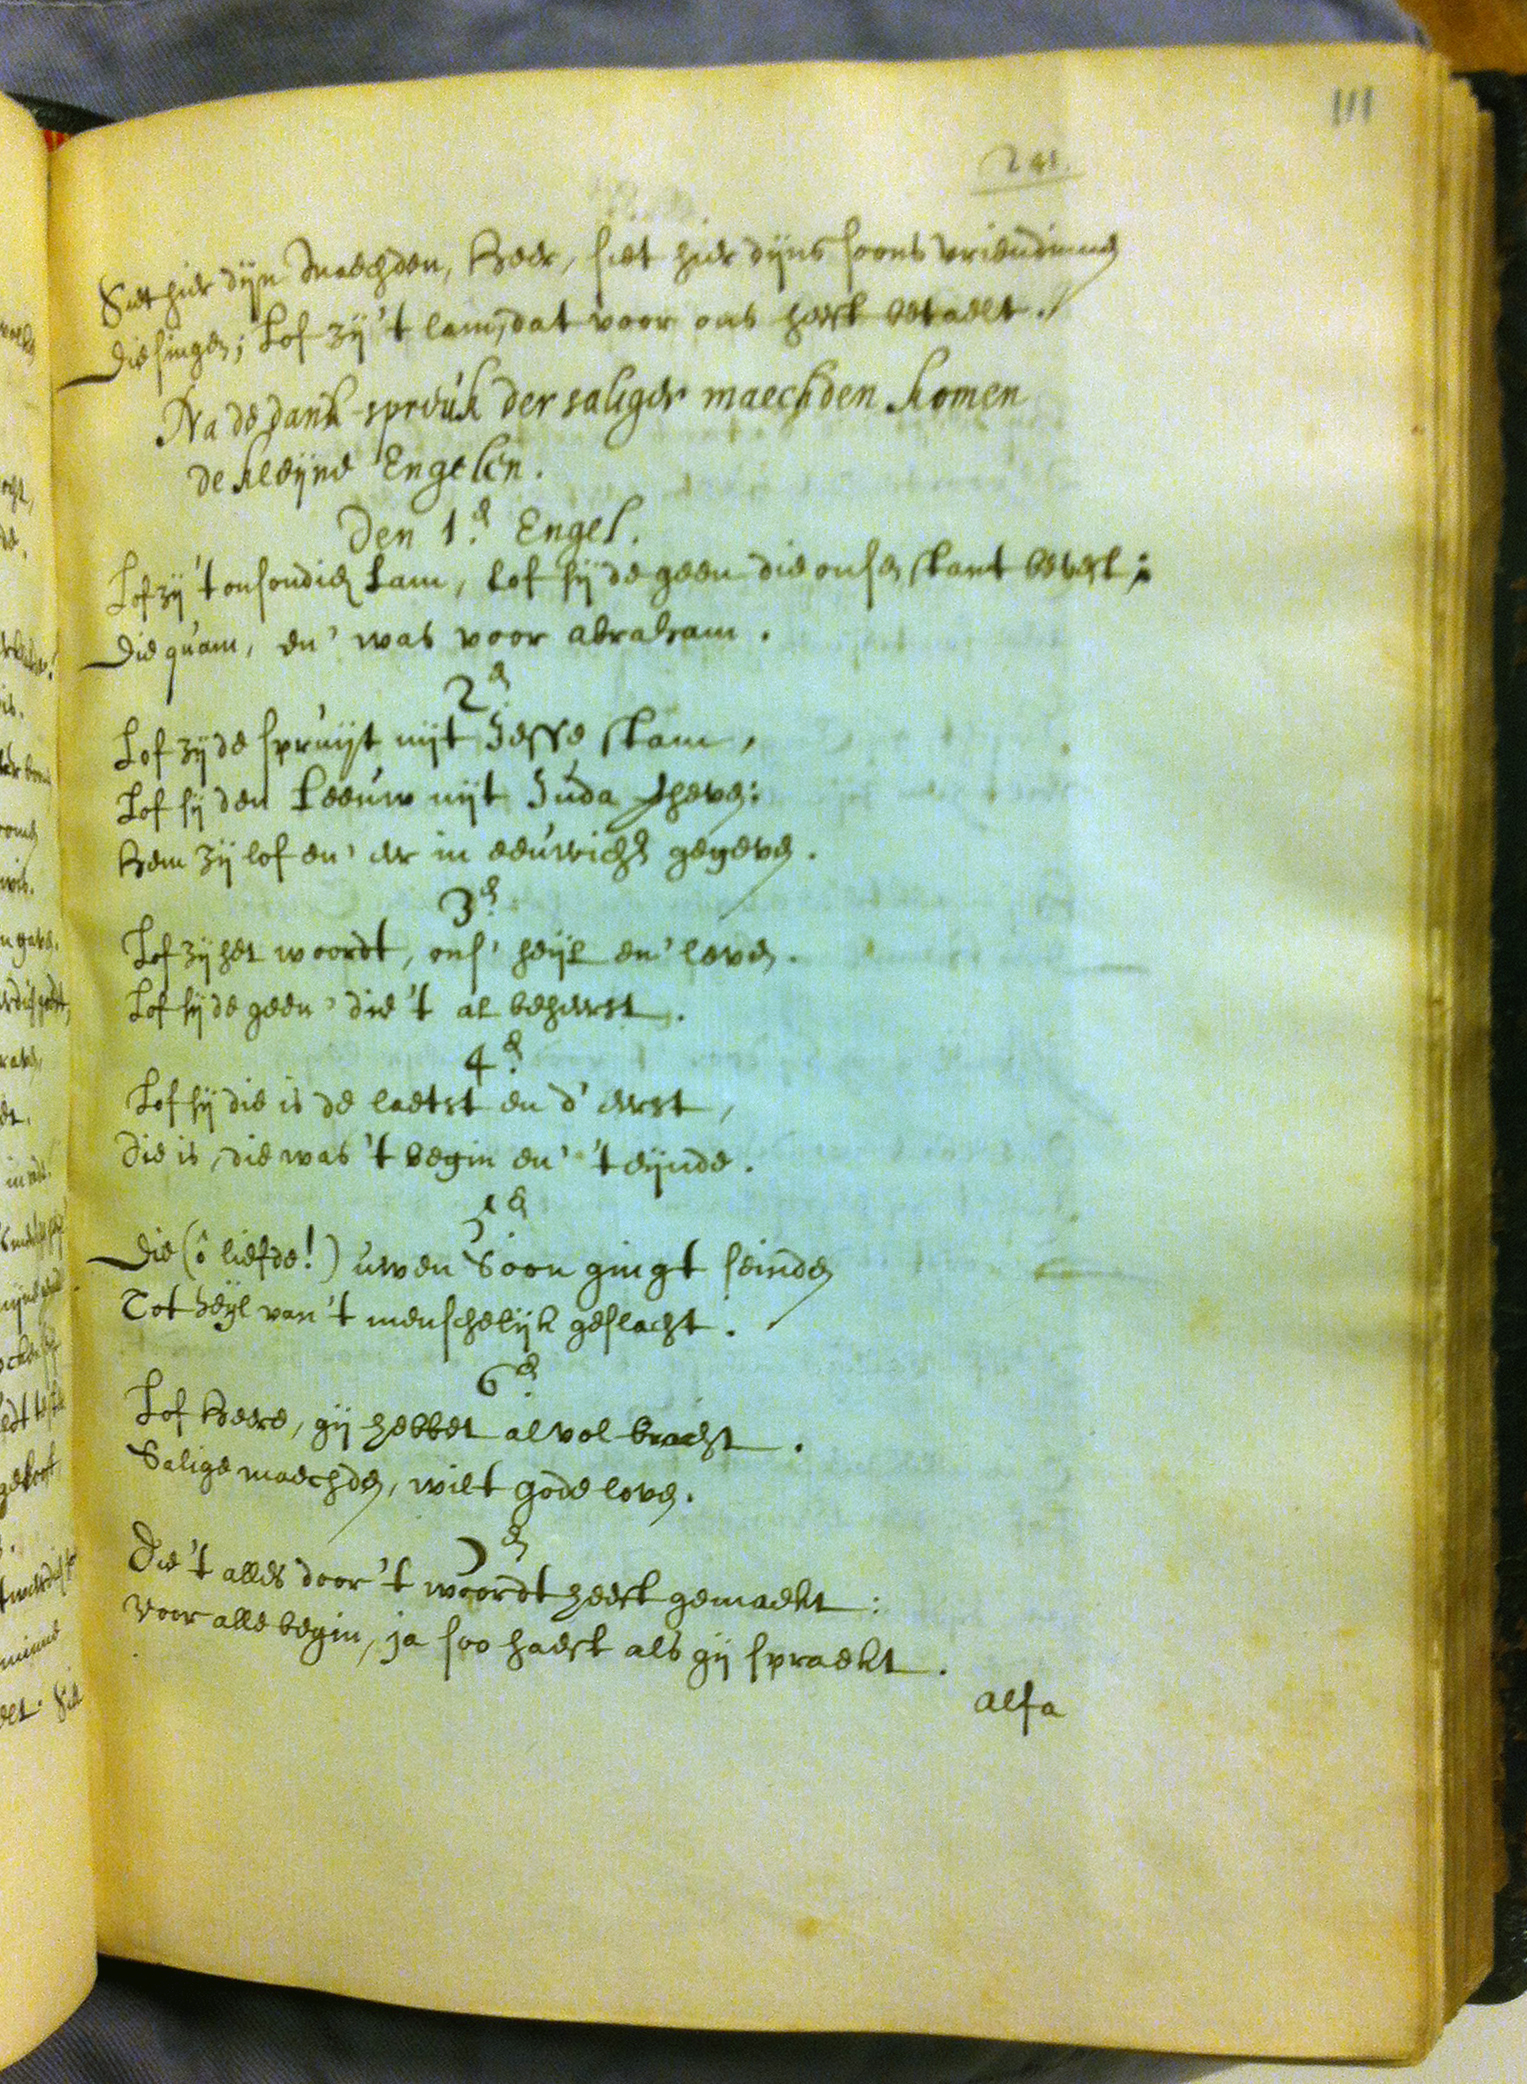 111
241.
Siet hier dijn maechden, Heer, siet hier dijns soons vriendinnen
Die singen; Lof zij 't lam, dat voor ons heeft betaelt.
Na de dank-spreuk der saliger maechden komen
de kleijne Engelen.
Den 1.en Engel.
Lof zij 't onsondich Lam, lof sij de geen die onsen stant beseft;
Die quam, en' was voor abraham.
2.en
Lof zij de spruijt uijt Jesse stam,
Lof sij den Leeuw uijt Juda sheven:
Hem zij lof en' eer in eeuwicht gegeven.
3.en
Lof zij het woordt, ons' heijl en' leven.
Lof sij de geen' die 't al beheerst.
4.en
Lof sij die is de laetst en d' eerst,
Die is, die was 't begin en' 't eijnde.
5.en
Die (ô liefde!) uwen Soon gingt seinden
Tot heijl van 't menschelijk geslacht.
6.en
Lof Heere, gij hebbet al vol bracht.
Salige maechden, wilt gode loven.
7.en
Die 't alles door 't woordt heeft gemaekt:
Voor alle begin, ja soo haest als gij spraekt.
alfa